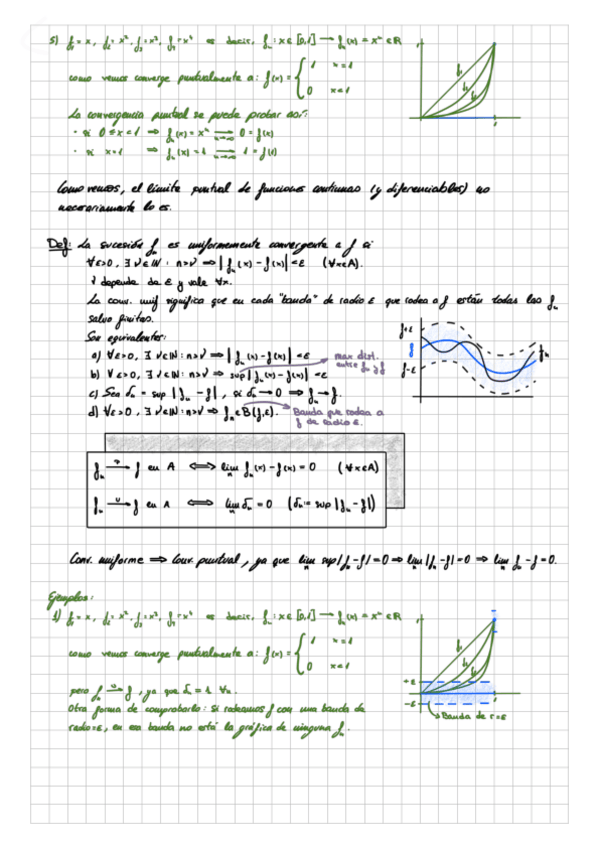 5) f₁ = x, f₂ = x², f₃ = x³, f₄ = x⁴ es decir, fₙ : x ∈ [0,1] → fₙ(x) = xⁿ ∈ ℝ
como vemos converge puntualmente a: f(x) = { 1 x=1
0 x<1
La convergencia puntual se puede probar así:
· si 0 ≤ x < 1 ⇒ fₙ(x) = xⁿ → 0 = f(x)
n→∞
· si x=1 ⇒ fₙ(x) = 1 → 1 = f(1)
n→∞
Como vemos, el límite puntual de funciones continuas (y diferenciables) no
necesariamente lo es.
Def: La sucesión fₙ es uniformemente convergente a f si
∀ε>0, ∃ν∈ℕ : n>ν ⇒ |fₙ(x) - f(x)| < ε (∀x∈A).
ν depende de ε y vale ∀x.
La conv. unif significa que en cada "banda" de radio ε que rodea a f están todas las fₙ
salvo finitas.
Son equivalentes:
a) ∀ε>0, ∃ν∈ℕ : n>ν ⇒ |fₙ(x) - f(x)| < ε
b) ∀ε>0, ∃ν∈ℕ : n>ν ⇒ sup|fₙ(x) - f(x)| < ε
max dist.
entre fₙ y f
c) Sea δₙ = sup |fₙ - f|, si δₙ → 0 ⇒ fₙ → f.
d) ∀ε>0, ∃ν∈ℕ : n>ν ⇒ fₙ ∈ B(f,ε).
Banda que rodea a
f de radio ε.
f+ε
f
f-ε
fₙ
fₙ →ᵖ f en A ⟺ lim fₙ(x) - f(x) = 0 (∀x∈A)
n
fₙ →ᵘ f en A ⟺ lim δₙ = 0 (δₙ = sup |fₙ - f|)
n
Conv. uniforme ⇒ Conv. puntual, ya que lim sup|fₙ - f| = 0 ⇒ lim |fₙ - f| = 0 ⇒ lim fₙ - f = 0.
Ejemplos:
1) f₁ = x, f₂ = x², f₃ = x³, f₄ = x⁴ es decir, fₙ : x ∈ [0,1] → fₙ(x) = xⁿ ∈ ℝ
como vemos converge puntualmente a: f(x) = { 1 x=1
0 x<1
pero fₙ ↛ᵘ f, ya que δₙ = 1 ∀n.
Otra forma de comprobarlo: si rodeamos f con una banda de
radio=ε, en esa banda no está la gráfica de ninguna fₙ.
+ε
-ε
Banda de r=ε